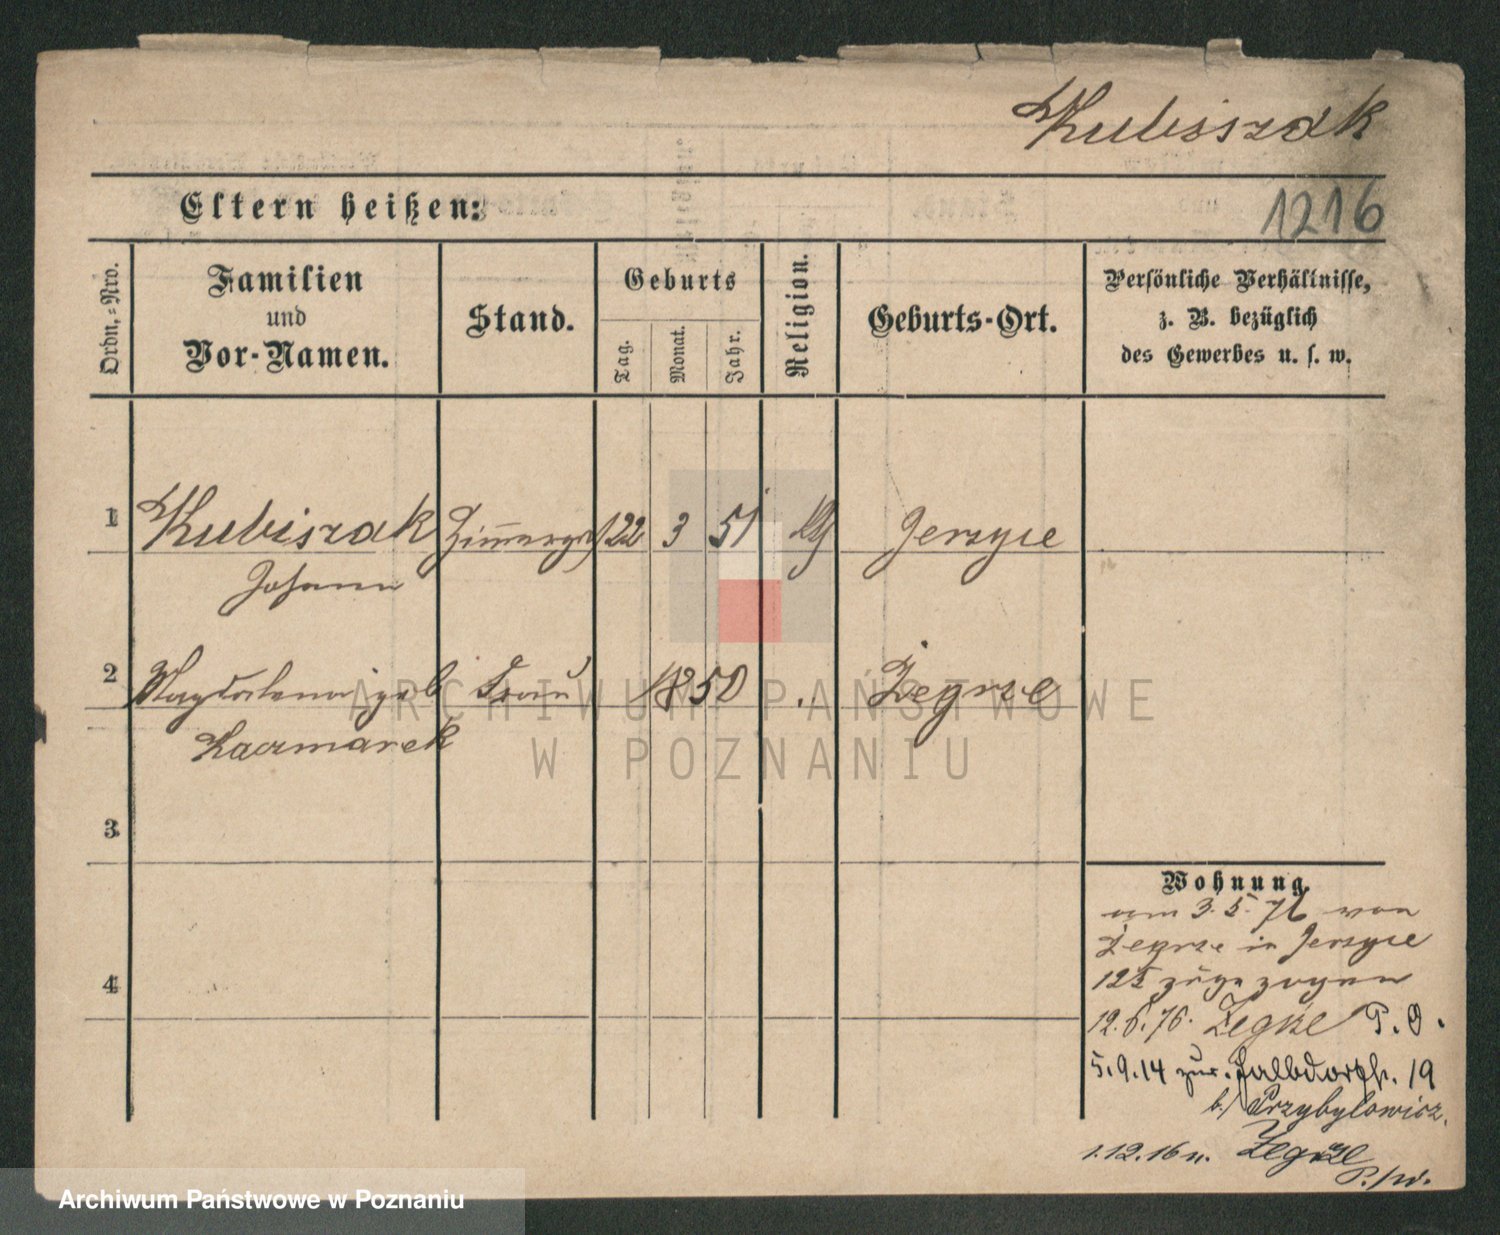 Kubiszak
Eltern heißen:
1216
Ordn.=Nro.
Familien
und
Vor-Namen.
Stand.
Geburts
Tag.
Monat.
Jahr.
Religion.
Geburts-Ort.
Persönliche Verhältnisse,
z. B. bezüglich
des Gewerbes u. s. w.
1 Kubiszak 22 3 51 Jerzyce
Johann
2 Magdalena geb Frau 18 50 Żegrze
Kaczmarek
3
4
Wohnung.
am 3. 5. 76 von
Żegrze in Jerzyce
125 zugezogen
12.6.76. Żegrze P. O.
5.9.14 zur. Halbdorfstr. 19
b/ Przybylowicz.
1.12.16 n. Żegrze
ARCHIWUM PAŃSTWOWE
W POZNANIU
Archiwum Państwowe w Poznaniu